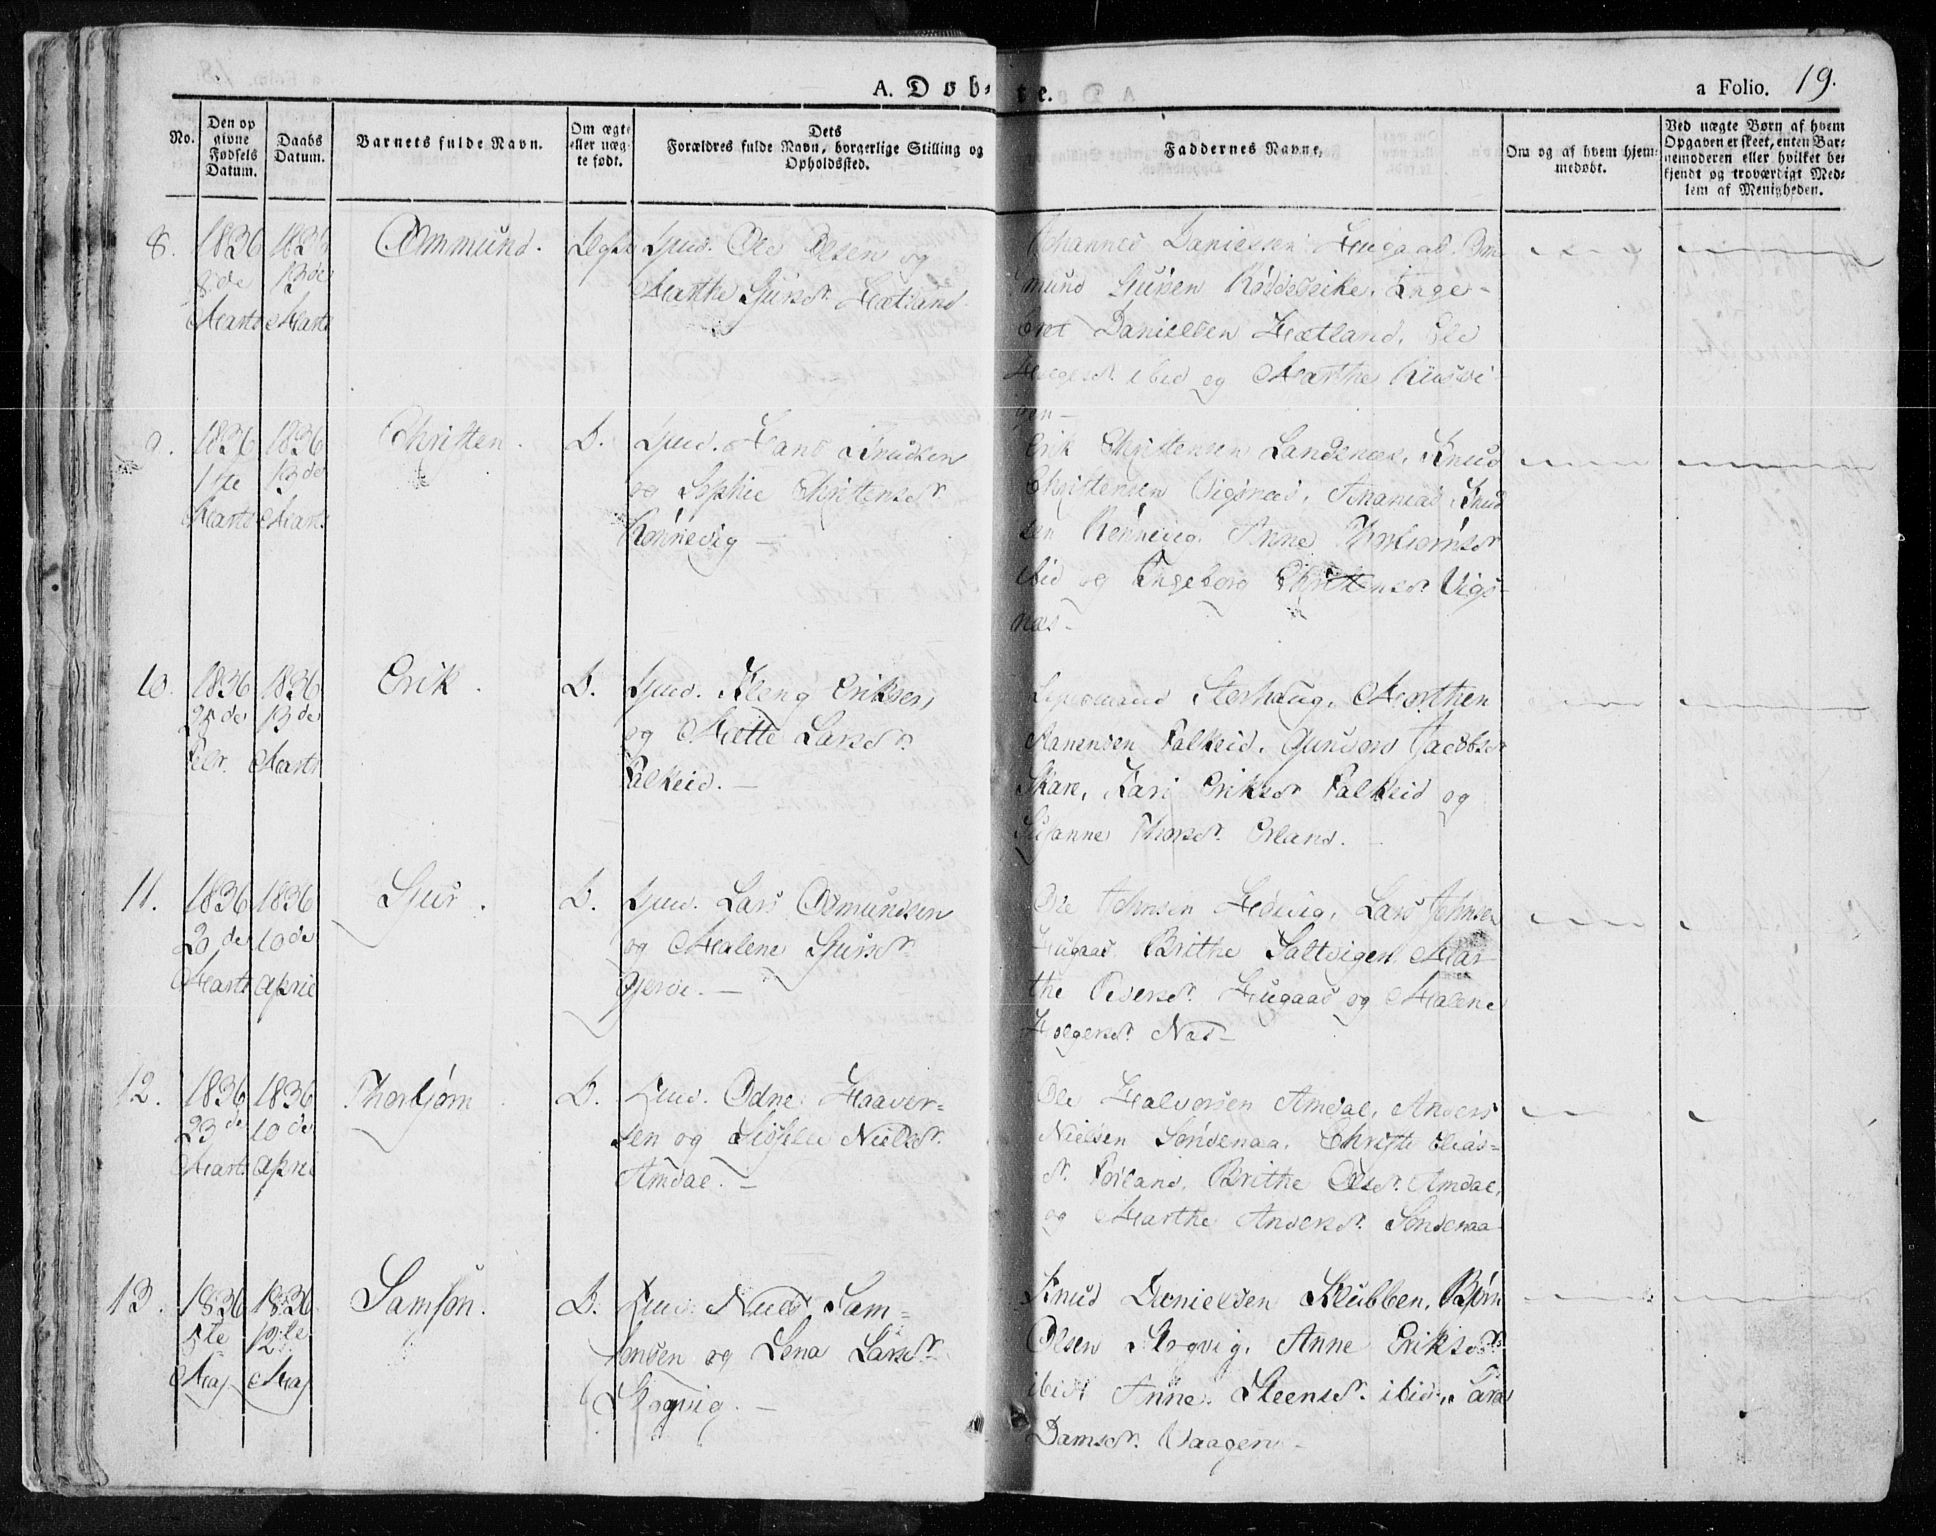 A. Døb-te.
a Folio. 19.
No.
Den op
givne
Fødsels
Datum.
Daabs
Datum.
Barnets fulde Navn.
Om ægte
eller uæg-
te født.
Dets
Forældres fulde Navn, borgerlige Stilling og
Opholdssted.
Faddernes Navne,
Om og af hvem hjem-
medøbt.
Ved uægte Børn af hvem
Opgaven er skeet, enten Bar-
nemoderen eller hvilket be-
kjendt og troværdigt Med-
lem af Menigheden.
8.
1836
8de
Marts
1836
13de
Marts
Ommund.
Ægte
Gmd. Ole Olsen og
Marthe Sjursdr. Hetland
Johannes Danielsen Hugaas. Om-
mund Sjursen Røddelsike, Enge-
bret Danielsen Hetland,
ibid og Marthe
gen -
9.
1836
1ste
Marts
1836
13de
Marts
Christen.
D.
Gmd. Hans Knudsen
og Sophie Christensdr.
Rønnevig -
Erik Christensen Landsnæs, Knud
Christensen Vigsnæs, Ananias Knud
sen Rønnevig, Anne Thorbiørnsdr
ibid og Engeborg Christensdr. Vigs-
næs -
10.
1836
25de
Febr.
1836
13de
Marts
Erik.
D.
Gmd. Kleng Eriksen
og Mette Larsdr.
Falkeid. -
Storhaug, Morthen
Falkeid, Gunvor Jacobsdr
Skare, Kari Eriksdr Falkeid og
Susanne Thorsdr. Orland. -
11.
1836
20de
Marts
1836
10de
April
Sjur.
D.
Gmd. Lars Osmundsen
og Malene Sjursdr.
Gjerde. -
Ole Johnsen Hedvig, Lars Johnsen
Hugaas, Brithe Saltvigen, Mar-
the Pedersdr. Hugaas og Malene
Holgersdr. Nas -
12.
1836
23de
Marts
1836
10de
April
Thorbjørn
D.
Gmd. Odne Haaver-
sen og Nielsdr.
Amdal. -
Ole Halvorsen Amdal, Anders
Nielsen Søndenaa, Christi Elias-
dr. Førland, Brithe Olsdr. Amdal,
og Marthe Andersdr. Søndenaa
13.
1836
5te
Maj
1836
12te
Maj
Samson.
D.
Gmd. Niels Sam-
sonsen og Lena Larsdr.
Skogvig. -
Knud Danielsen Klubben, Bjørn
Olsen Skogvig, Anne Eriksdr.
ibid, Anne Steensdr. ibid,
Vaagen -